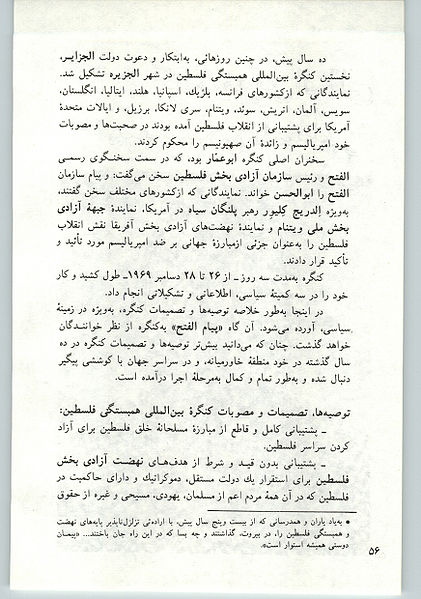 ده سال پیش، در چنین روزهائی، به‌ابتکار و دعوت دولت الجزایر،
نخستین کنگرهٔ بین‌المللی همبستگی فلسطین در شهر الجزیره تشکیل شد.
نمایندگانی که ازکشورهای فرانسه، بلژیك، اسپانیا، هلند، ایتالیا، انگلستان،
سویس، آلمان، اتریش، سوئد، ویتنام، سری لانکا، برزیل، و ایالات متحدهٔ
آمریکا برای پشتیبانی از انقلاب فلسطین آمده بودند در صحبت‌ها و مصوبات
خود امپریالیسم و زائدهٔ آن صهیونیسم را محکوم کردند.
سخنران اصلی کنگره ابوعمّار بود، که در سمت سخنگوی رسمی
الفتح و رئیس سازمان آزادی بخش فلسطین سخن می‌گفت؛ و پیام سازمان
الفتح را ابوالحسن خواند. نمایندگانی که ازکشورهای مختلف سخن گفتند،
به‌ویژه اِلدریج کِلیور رهبر پلنگان سیاه در آمریکا، نمایندهٔ جبههٔ آزادی
بخش ملی ویتنام و نمایندهٔ نهضت‌های آزادی بخش آفریقا نقش انقلاب
فلسطین را به‌عنوان جزئی ازمبارزهٔ جهانی بر ضد امپریالیسم مورد تأیید و
تأکید قرار دادند.
کنگره به‌مدت سه روز ـ از ۲۶ تا ۲۸ دسامبر ۱۹۶۹ـ طول کشید و کار
خود را در سه کمیتهٔ سیاسی، اطلاعاتی و تشکیلاتی انجام داد.
در اینجا به‌طور خلاصه توصیه‌ها و تصمیمات کنگره، به‌ویژه در زمینهٔ
سیاسی، آورده می‌شود. آن گاه «پیام الفتح» به‌کنگره از نظر خوانندگان
خواهد گذشت. چنان که می‌دانید بیش‌تر توصیه‌ها و تصمیمات کنگره در ده
سال گذشته در خود منطقهٔ خاورمیانه، و در سراسر جهان با کوششی پیگیر
دنبال شده و به‌طور تمام و کمال به‌مرحلهٔ اجرا درآمده است.
توصیه‌ها، تصمیمات و مصوبات کنگرهٔ بین‌المللی همبستگی فلسطین:
ـ پشتیبانی کامل و قاطع از مبارزهٔ مسلحانهٔ خلق فلسطین برای آزاد
کردن سراسر فلسطین.
ـ پشتیبانی بدون قید و شرط از هدف‌های نهضت آزادی بخش
فلسطین برای استقرار یك دولت مستقل، دموکراتیك و دارای حاکمیت در
فلسطین که در آن همهٔ مردم اعم از مسلمان، یهودی، مسیحی و غیره از حقوق
• به‌یاد یاران و همدرسانی که از بیست وپنج سال پیش، با اراده‌ئی تزلزل‌ناپذیر پایه‌های نهضت
و همبستگی فلسطین را، در بیروت، گذاشتند و چه بسا که در این راه جان باختند... «پیمان
دوستی همیشه استوار است».
۵۶